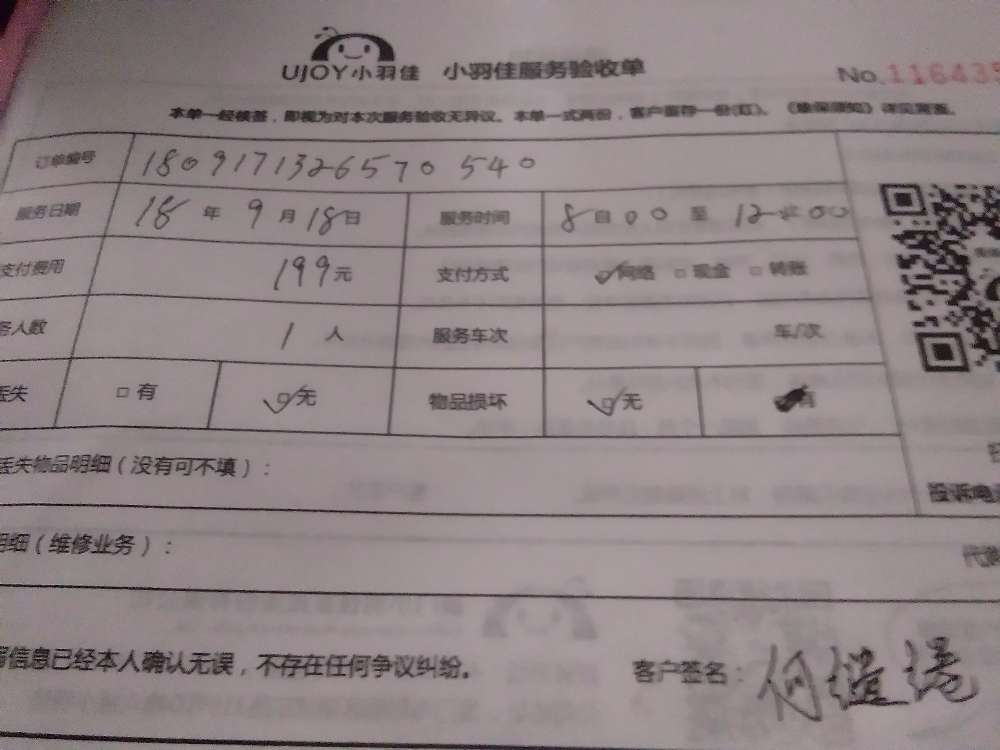 UJOY小羽佳 小羽佳服务验收单
No.116435
本单一经核签，即视为对本次服务验收无异议。本单一式两份，客户留存一份(红)。《维保须知》详见背面。
订单编号 180917132657 0 540
服务日期 18 年 9 月 18 日 服务时间 8 自 00 至 12 00
支付费用 199 元 支付方式 网络 □ 现金 □ 转账
务人数 1 人 服务车次 车/次
丢失 □ 有 无 物品损坏 无 有
丢失物品明细（没有可不填）：
投诉电
明细（维修业务）：
信息已经本人确认无误，不存在任何争议纠纷。 客户签名：何